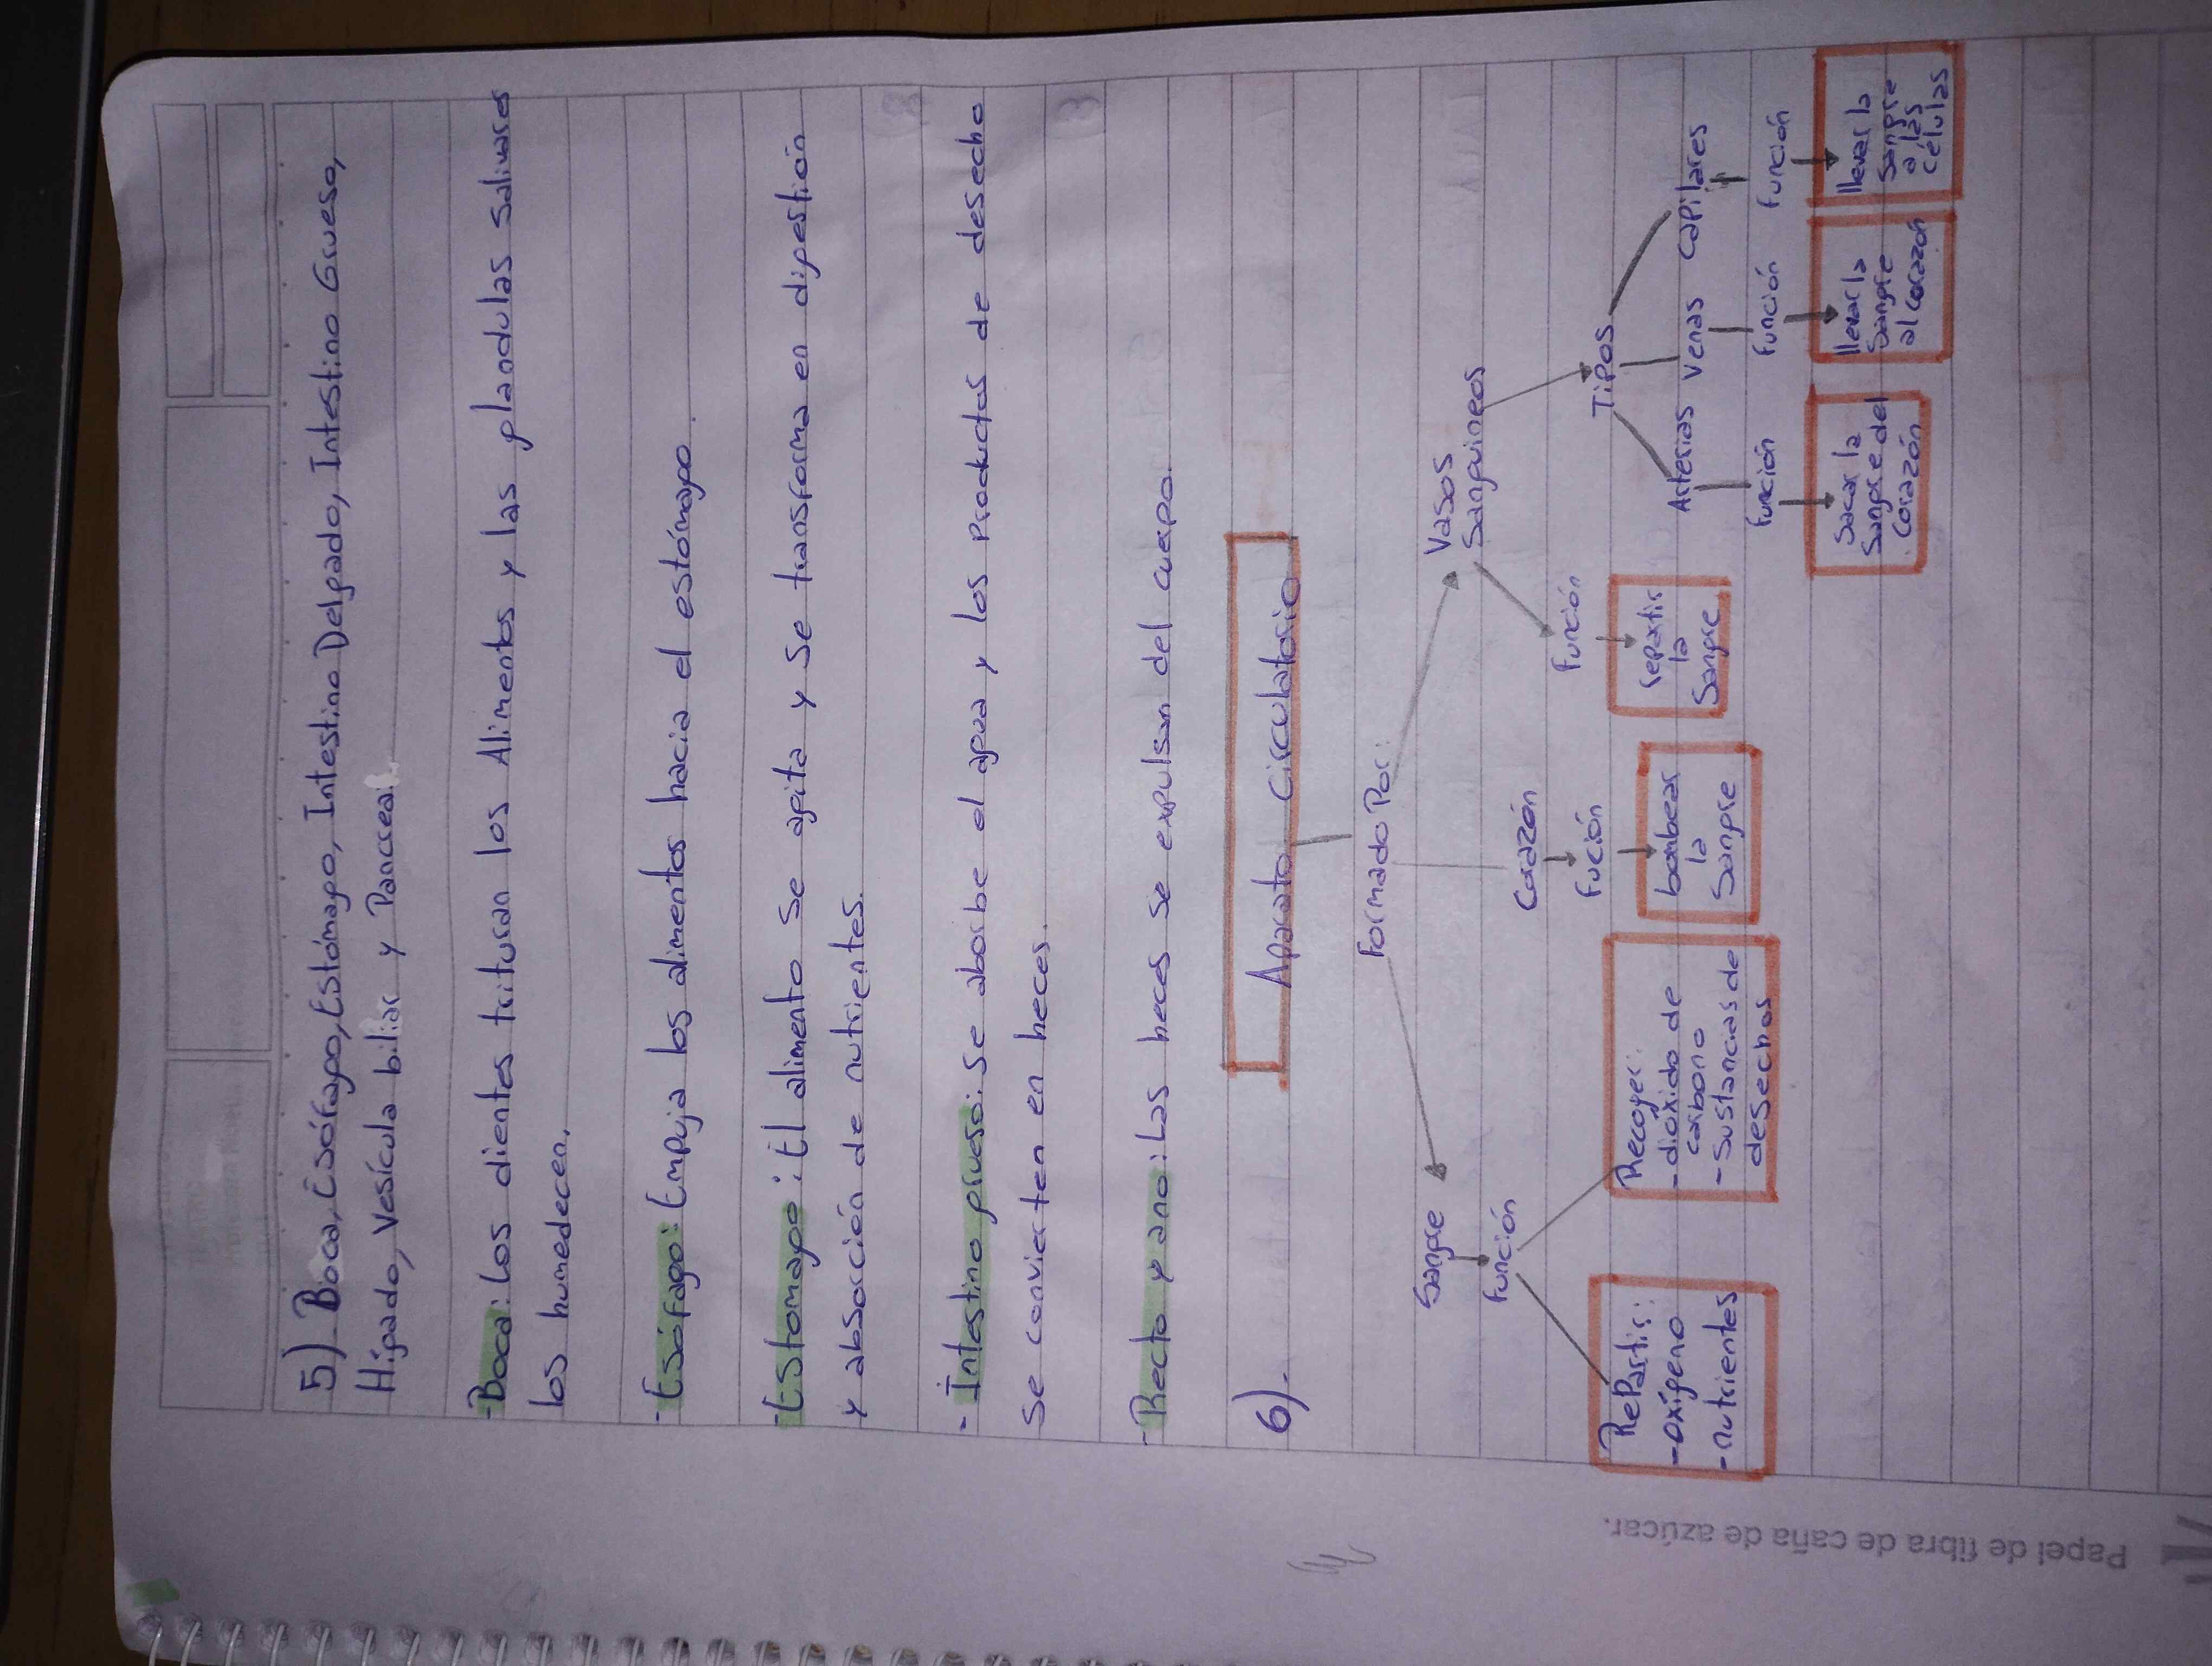 5). Boca, Esófago, Estómago, Intestino Delgado, Intestino Grueso,
Hígado, Vesícula biliar y Pancrea.
-Boca: Los dientes trituran los Alimentos y las glandulas salivares
los humedecen.
-Esófago: Empuja los alimentos hacia el estómago.
-Estomago: El alimento se agita y se transforma en digestión
y absorción de nutrientes.
- Intestino grueso: Se aborbe el agua y los productos de desecho
se convierten en heces.
-Recto y ano: Las heces se expulsan del cuerpo.
6).
Aparato Circulatorio
Formado Por:
Sangre
Función
RePartir:
-oxígeno
-nutrientes
Recoger:
-dióxido de
carbono
-Sustancias de
desechos
Corazón
Fución
bombear
la
Sangre
Vasos
Sanguineos
Función
repartir
la
Sangre
TiPos
Arterias Venas Capilares
Función Función Función
Sacar la
Sangre del
Corazón
llevar la
Sangre
al Corazón
llevar la
Sangre
a las
Células
Papel de fibra de caña de azúcar.